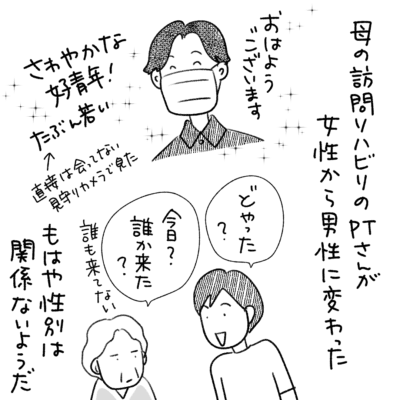 母の訪問リハビリのPTさんが
女性から男性に変わった
おはよう
ございます
さわやかな
好青年!
たぶん若い
直接は会ってない
見守りカメラで見た
どやった
?
今日?
誰か来た
?
誰も来てない
もはや性別は
関係ないようだ